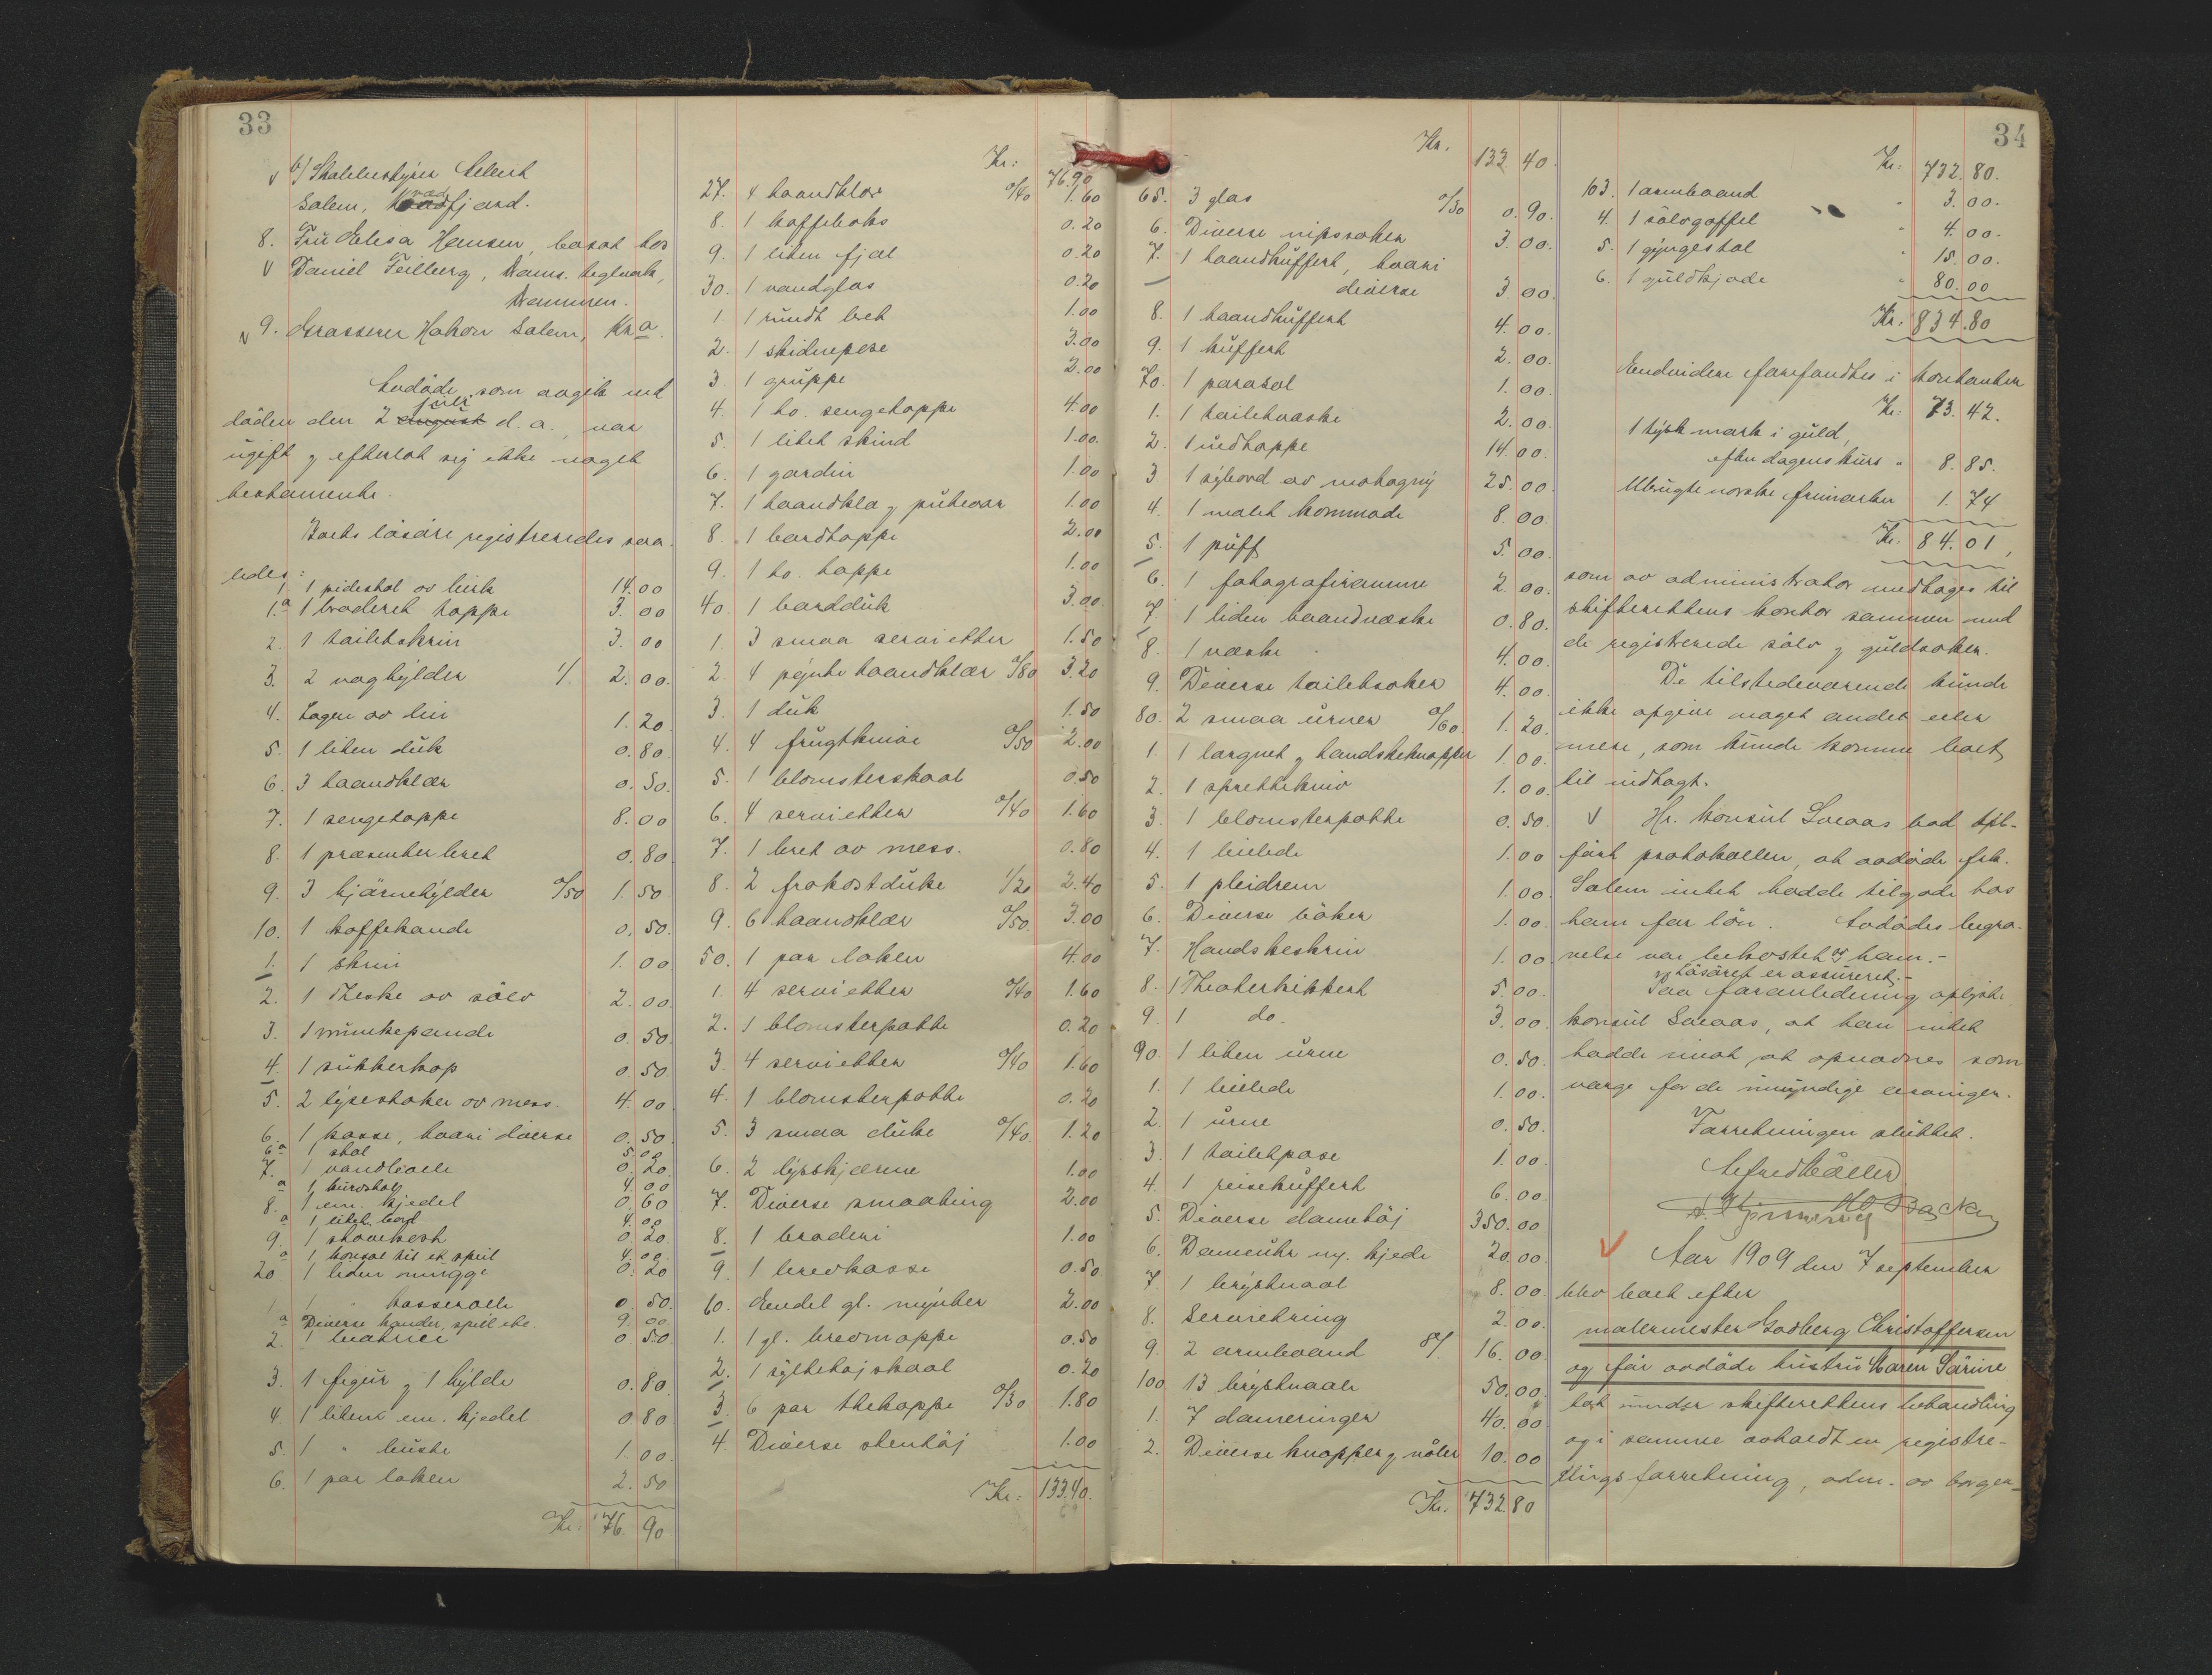 33
b/ Skatteskyver
Salem, fjord.
8. Fru Elisa Hansen, bosat hos
Daniel Feilberg, Drams. teglverk,
Drammen.
9. Grosserer Hakon Salem, Kr.a.
Avdøde, som avgik ved
døden den 2 juli d. a., var
ugift og efterlot sig ikke noget
testamente.
Boets løsøre registreredes saa-
ledes:
1 1 pidestal av birk 14.00
1.a 1 broderet tæppe 3.00
2. 1 toiletskrin 3.00
3. 2 væghylder 1/. 2.00.
4. Lagen av lin 1.20
5. 1 liten duk 0.80.
6. 3 haandklær 0.50.
7. 1 sengetæppe 8.00
8. 1 præsenterbret 0.80
9. 3 hjørnehylder 0/50 1.50
10. 1 kaffekande 0.50
1. 1 skrin 1.00
2. 1 Theske av sølv 2.00
3. 1 munkepande 0.50
4. 1 sukkerkop 0.50
5. 2 lysestaker av mess. 4.00
6. 1 kasse, hvori diverse 0.50
6a 1 stol 5.00
7. 1 vandbolle 0.20
a 1 kurvstol 4.00
8. 1 em. kjedel 0.60
a 1 litet bord 4.00
9. 1 skovlbrett 0.20
a 1 konsol 4.00
20 1 liden mugge 0.20
1 " kasserolle 0.50
a Diverse kander, speil etc. 9.00
2. 1 0.50
3. 1 figur og 1 hylde 0.80
4. 1 litent em. kjedel 0.80
5. 1 " buste 1.00
6. 1 par laken 2.50
Kr: 76.90
Kr: 76.90
27. 4 haandklær 0/40 1.60
8. 1 kaffeboks 0.20
9. 1 liten fjæl 0.20
30. 1 vandglas 0.20
1. 1 rundt bret 1.00
2. 1 skidnepose 3.00
3. 1 gruppe 2.00
4. 1 ho. sengetæppe 4.00
5. 1 litet skind 1.00
6. 1 gardin 1.00
7. 1 haandkla og putevar 1.00
8. 1 bordtæppe 2.00
9. 1 ho. tæppe 1.00
40. 1 bordduk 3.00
1. 3 smaa servietter 1.50
2. 4 pynte haandklær 0/80 3.20
3. 1 duk 1.50
4. 4 frugtknive 0/50 2.00
5. 1 blomsterskaal 0.50
6. 4 servietter 0/40 1.60
7. 1 bret av mess. 0.80
8. 2 frokostduke 1/20 2.40
9. 6 haandklær 0/50 3.00
50. 1 par laken 4.00
1. 4 servietter 0/40 1.60
2. 1 blomsterpotte 0.20
3. 4 servietter 0/40 1.60
4. 1 blomsterpotte 0.20
5. 3 smaa duke 0/40 1.20
6. 2 lysskjerme 1.00
7. Diverse smaating 2.00
8. 1 broderi 1.00
9. 1 brevkasse 0.50
60. Endel gl. mynter 2.00
1. 1 gl. brevmappe 0.50
2. 1 syltetøiskaal 0.20
3. 6 par thekopper 0/30 1.80
4. Diverse stentøj 1.00
Kr: 133.40.
34
Kr. 133.40.
65. 3 glas 0/30 0.90.
6. Diverse nipssaker 3.00.
7. 1 haandkuffert, hvori
diverse 3.00.
8. 1 haandkuffert 4.00.
9. 1 kuffert 2.00.
70. 1 parasol 1.00.
1. 1 toiletvaske 2.00.
2. 1 uldtæppe 14.00
3. 1 sybord av mahogny 25.00
4. 1 malet kommode 8.00
5. 1 puff 5.00
6. 1 fotografiramme 2.00
7. 1 liden haandvæske 0.80
8. 1 væske 4.00
9. Diverse toiletsaker 4.00
80. 2 smaa urner 0/60 1.20
1. 1 lorgnet og handskeknapper 1.00
2. 1 sprettekniv 1.00
3. 1 blomsterpotte 0.50
4. 1 billede 1.00
5. 1 pleidrem 1.00
6. Diverse bøker 1.00
7. Handskeskrin 1.00
8. 1 Theaterkikkert 5.00
9. 1 do. 3.00
90. 1 liten urne 0.50
1. 1 billede 1.00
2. 1 urne 0.50
3. 1 toiletpose 1.00
4. 1 reisekuffert 6.00
5. Diverse dametøj 350.00
6. Dameuhr m. kjede 20.00
7. 1 brystnaal 8.00
8. Serviettring 2.00
9. 2 armbaand 8/. 16.00
100. 13 brystnaale 50.00
1. 7 dameringer 40.00
2. Diverse knapper og nåler 10.00
Kr. 732.80
Kr: 732.80.
103. 1 armbaand " 3.00.
4. 1 sølvgaffel " 4.00.
5. 1 gyngestol " 15.00.
6. 1 guldkjæde " 80.00
Kr: 834.80
Endvidere forefandtes i kontanter
Kr: 73.42.
1 tysk mark i guld,
efter dagens kurs " 8.85.
Ubrugte norske frimærker 1.74
Kr. 84.01,
som av administrator medtoges til
skifterettens kontor sammen med
de registrerede sølv og guldsaker.
De tilstedeværende kunde
ikke opgive noget andet eller
mere, som kunde komme boet
til indtægt.
Hr. Konsul Sveaas bad til-
ført protokollen, at avdøde frk.
Salem intet hadde tilgode hos
ham for løn. Avdødes begra-
velse var bekostet av ham.-
Løsøret er assureret.-
Paa foranledning oplyste
konsul Sveaas, at han intet
hadde imot at opnævnes som
værge for de umyndige arvinger.
Forretningen sluttet.
Alfred Møller
Aar 1909 den 7 september
blev boet efter
malermester Godberg Christoffersen
og før avdøde hustru Karen Sørine
tat under skifterettens behandling
og i samme avholdt en registre-
ringsforretning, adm. av borger-